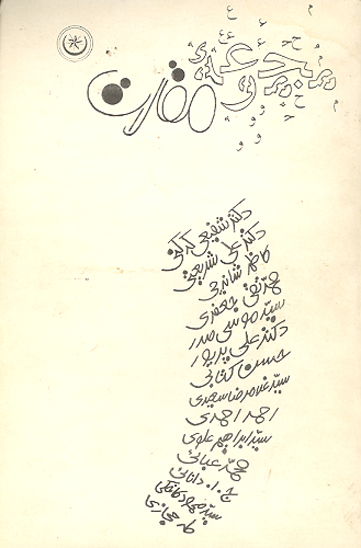 مجموعه
مقالات
دکتر شفیعی کدکنی
دکتر علی شریعتی
کاظم شانه‌چی
محمد تقی جعفری
سید موسی صدر
دکتر علی پریور
حسن کتابی
سید غلامرضا سعیدی
احمد احمدی
سید ابراهیم علوی
محمد عبائی
ج . ا . دانائی
سید محمود کافکی
طه حجازی